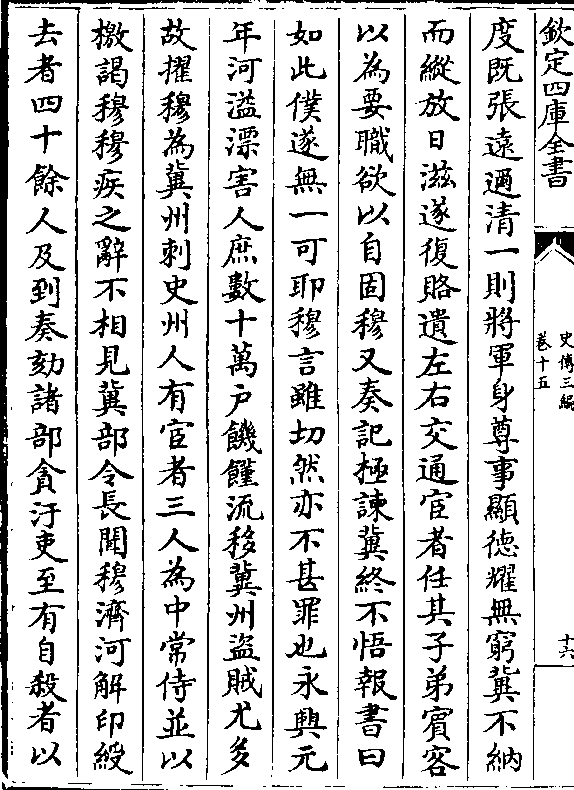 欽定四庫全書
史傳三編
卷十五
十六
度既張遠邇清一則將軍身尊事顯德耀無窮冀不納
而縱放日滋遂復賂遺左右交通宦者任其子弟賓客
以為要職欲以自固穆又奏記極諫冀終不悟報書曰
如此僕遂無一可耶穆言雖切然亦不甚罪也永興元
年河溢漂害人庶數十萬户饑饉流移冀州盜賊尤多
故擢穆為冀州刺史州人有宦者三人為中常侍並以
檄謁穆穆疾之辭不相見冀部令長聞穆濟河解印綬
去者四十餘人及到奏劾諸部貪汙吏至有自殺者以